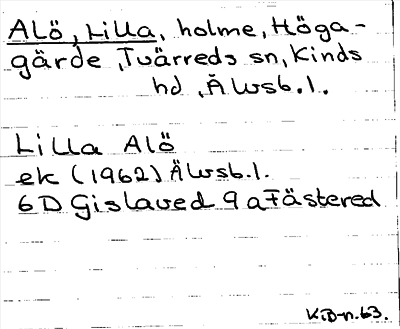 Alö, Lilla, holme, Höga-
gärde, Tvärreds sn, Kinds
hd, Älvsb. l.
Lilla Alö
ek (1962) Älvsb. l.
6D Gislaved 9 a Fästered
KiB-n. 63.